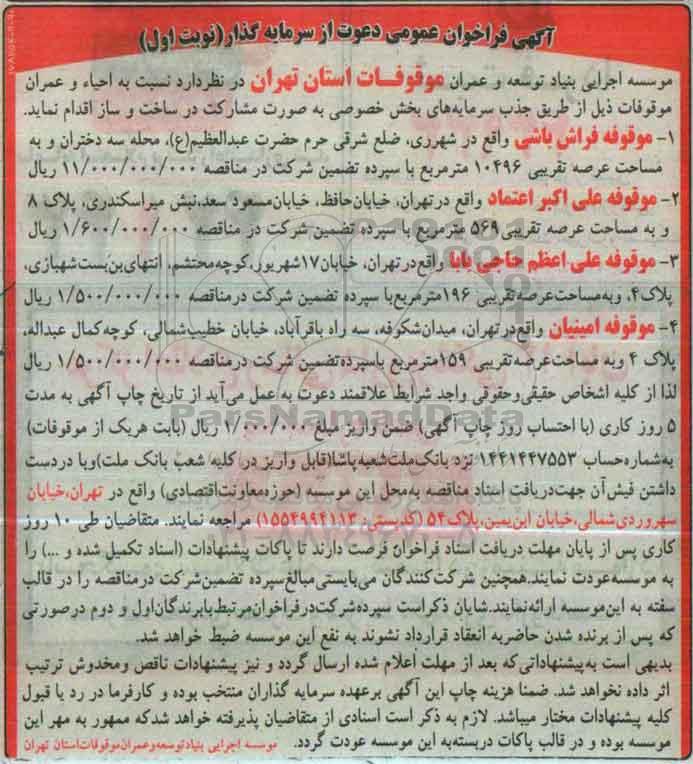 آگهی فراخوان عمومی دعوت از سرمایه گذار(نوبت اول)
موسسه اجرایی بنیاد توسعه و عمران موقوفات استان تهران در نظردارد نسبت به احیاء و عمران
موقوفات ذیل از طریق جذب سرمایه‌های بخش خصوصی به صورت مشارکت در ساخت و ساز اقدام نماید.
۱- موقوفه فراش باشی واقع در شهرری، ضلع شرقی حرم حضرت عبدالعظیم(ع)، محله سه دختران و به
مساحت عرصه تقریبی ۱۰۴۹۶ مترمربع با سپرده تضمین شرکت در مناقصه ۱۱/۰۰۰/۰۰۰/۰۰۰ ریال
۲- موقوفه علی اکبر اعتماد واقع در تهران، خیابان‌حافظ، خیابان‌مسعود سعد،نبش میراسکندری، پلاک ۸
و به مساحت عرصه تقریبی ۵۶۹ مترمربع با سپرده تضمین شرکت در مناقصه ۱/۶۰۰/۰۰۰/۰۰۰ ریال
۳- موقوفه علی اعظم حاجی بابا واقع‌در تهران، خیابان ۱۷شهریور،کوچه‌محتشم، انتهای‌بن‌بست‌شهبازی،
پلاک۴، وبه‌مساحت‌عرصه‌تقریبی ۱۹۶مترمربع‌با سپرده تضمین شرکت درمناقصه ۱/۵۰۰/۰۰۰/۰۰۰ ریال
۴- موقوفه امینیان واقع‌در تهران، میدان‌شکوفه، سه راه باقرآباد، خیابان خطیب‌شمالی، کوچه‌کمال عبداله،
پلاک ۴ وبه مساحت‌عرصه‌تقریبی ۱۵۹مترمربع باسپرده‌تضمین شرکت درمناقصه ۱/۵۰۰/۰۰۰/۰۰۰ ریال
لذا از کلیه اشخاص حقیقی‌وحقوقی واجد شرایط علاقمند دعوت به عمل می‌آید از تاریخ چاپ آگهی به مدت
۵ روز کاری (با احتساب روز چاپ آگهی) ضمن واریز مبلغ ۱/۰۰۰/۰۰۰ ریال (بابت هریک از موقوفات)
به‌شماره‌حساب ۱۴۴۱۴۴۷۵۵۳ نزد بانک‌ملت‌شعبه‌پاشا(قابل واریز در کلیه شعب بانک ملت)وبا دردست
داشتن فیش‌آن جهت‌دریافت اسناد مناقصه به‌محل این موسسه (حوزه‌معاونت‌اقتصادی) واقع در تهران،خیابان
سهروردی‌شمالی،خیابان ابن‌یمین،پلاک۵۴ (کدپستی: ۱۵۵۴۹۹۴۱۱۳) مراجعه نمایند. متقاضیان طی ۱۰ روز
کاری پس از پایان مهلت دریافت اسناد فراخوان فرصت دارند تا پاکات پیشنهادات (اسناد تکمیل شده و ...) را
به موسسه‌عودت نمایند.همچنین شرکت‌کنندگان می‌بایستی مبالغ‌سپرده تضمین‌شرکت درمناقصه را در قالب
سفته به این‌موسسه ارائه‌نمایند.شایان ذکراست سپرده‌شرکت‌درفراخوان‌مرتبط‌بابرندگان‌اول و دوم درصورتی
که پس از برنده شدن حاضربه انعقاد قرارداد نشوند به نفع این موسسه ضبط خواهد شد.
بدیهی است به‌پیشنهاداتی‌که بعد از مهلت اعلام شده ارسال گردد و نیز پیشنهادات ناقص ومخدوش ترتیب
اثر داده نخواهد شد. ضمنا هزینه چاپ این آگهی برعهده سرمایه گذاران منتخب بوده و کارفرما در رد یا قبول
کلیه پیشنهادات مختار میباشد. لازم به ذکر است اسنادی از متقاضیان پذیرفته خواهد شدکه ممهور به مهر این
موسسه بوده و در قالب پاکات دربسته‌به این موسسه عودت گردد. موسسه اجرایی بنیادتوسعه‌وعمران‌موقوفات‌استان تهران
ParsNamadData